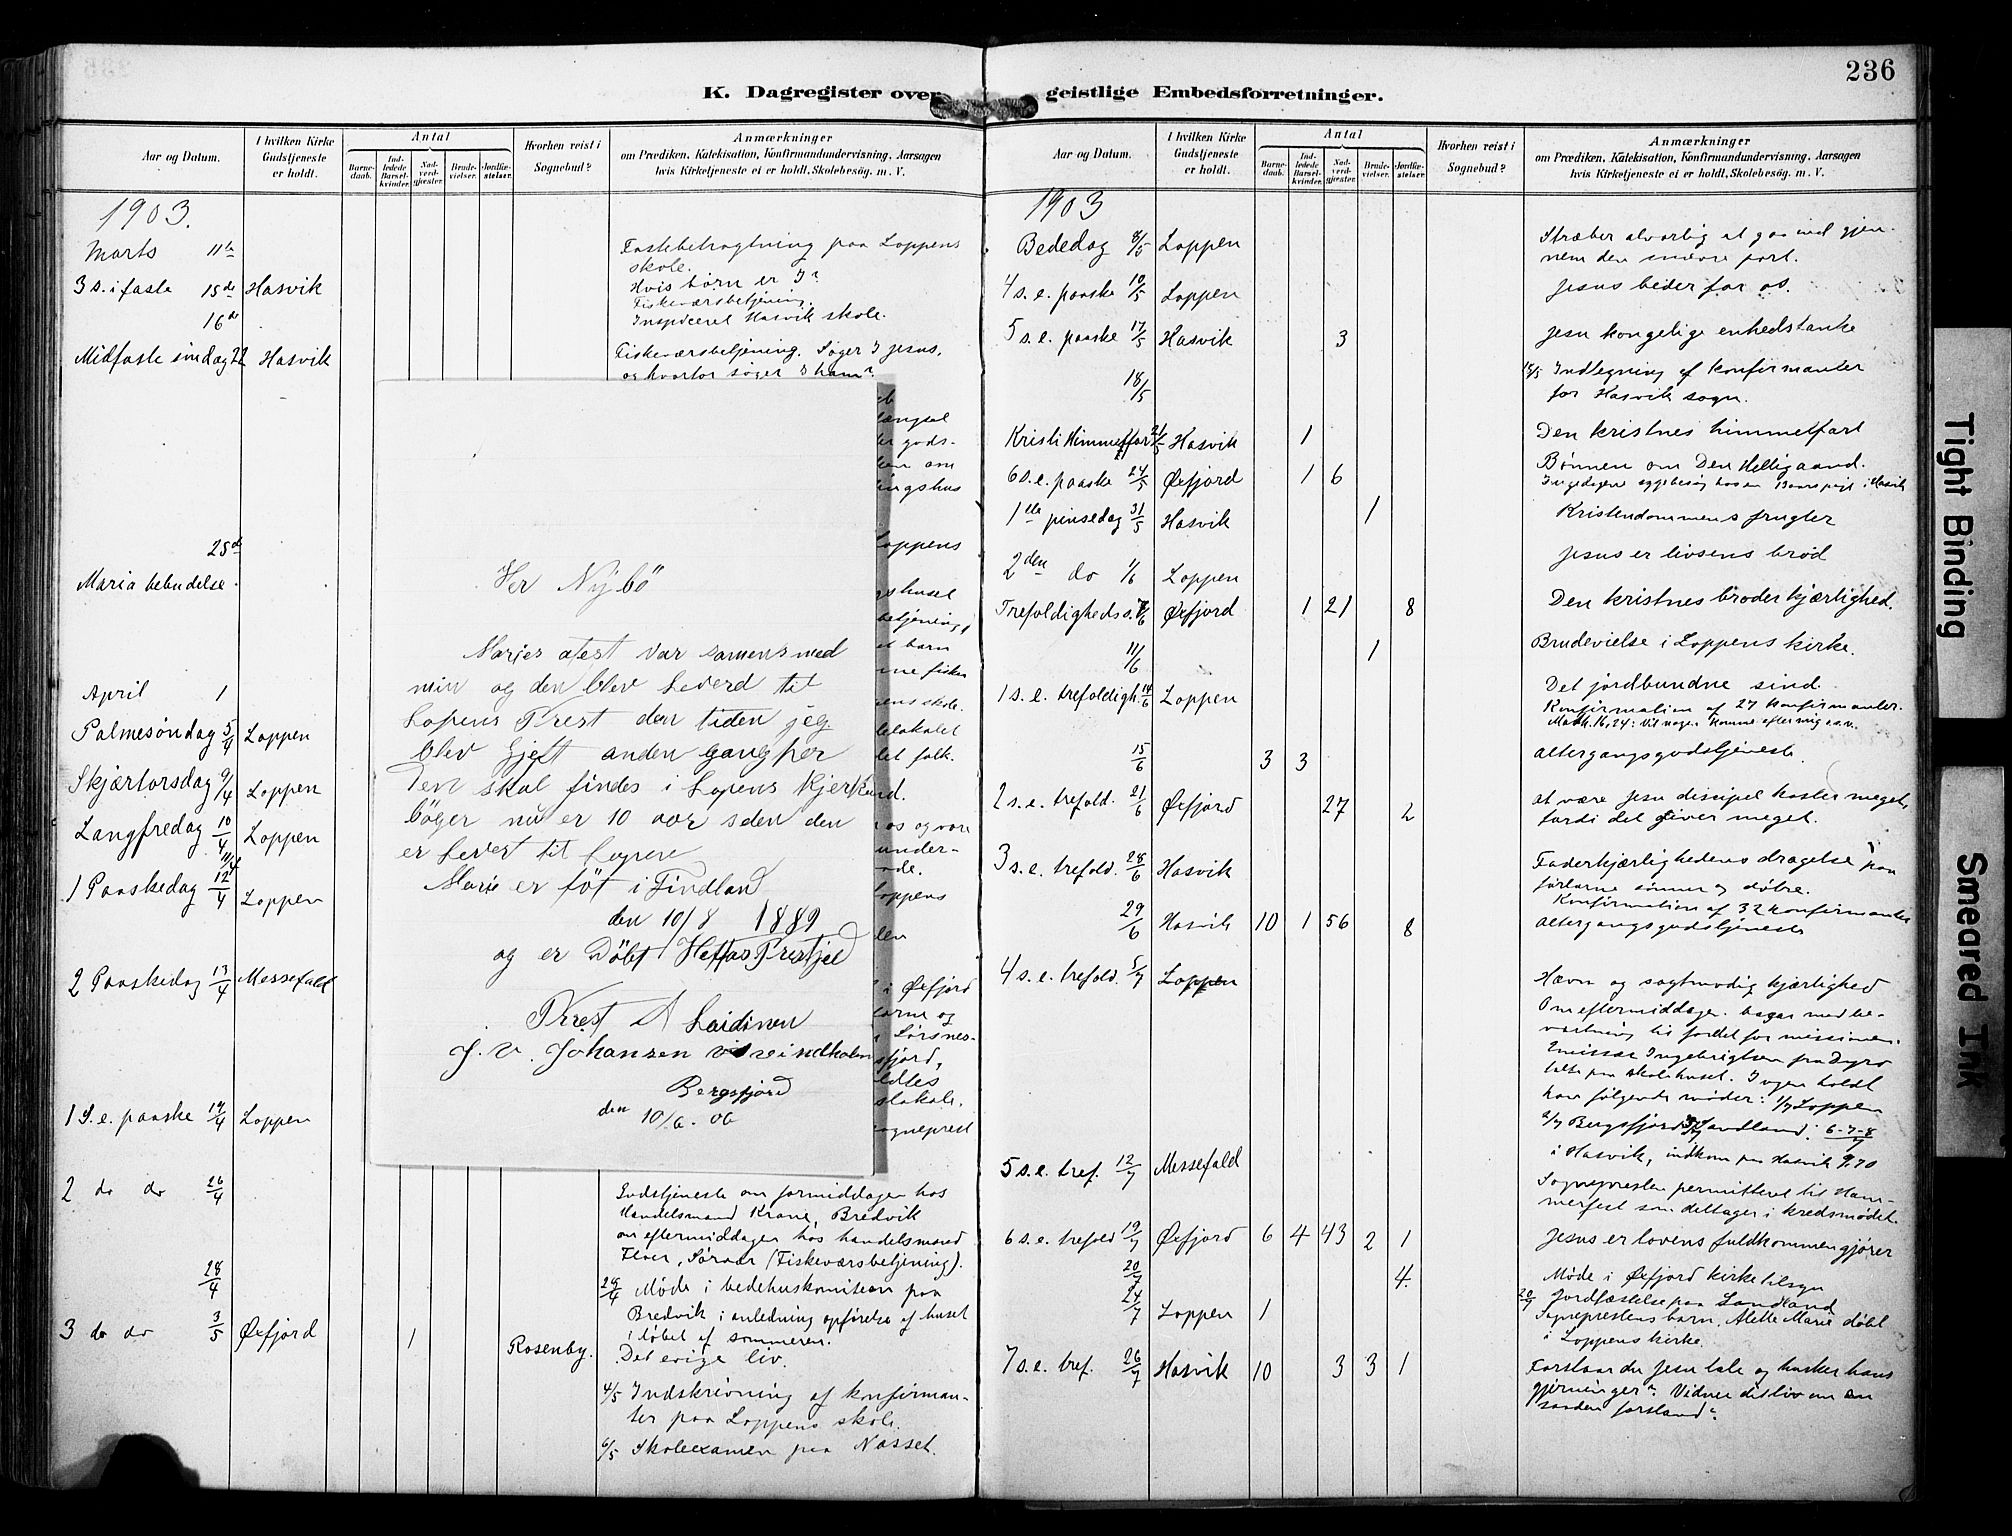 236
K. Dagregister over geistlige Embedsforretninger.
Aar og Datum.
I hvilken Kirke Gudstjeneste er holdt.
Antal
Barnedaab.
Indledede Barselkvinder.
Nadverdgjæster.
Brudevielser.
Jordfæstelser.
Hvorhen reist i Sognebud?
Anmærkninger
om Prædiken, Katekisation, Konfirmandundervisning, Aarsagen
hvis Kirketjeneste ei er holdt, Skolebesøg. m. V.
1903.
Marts 11te Fastebetragtning paa Loppens
skole.
3 s. i faste 15de Hasvik Hvis børn er I?
Fiskeværsbetjening.
16de Inspiceret Hasvik skole.
Midfaste søndag 22 Hasvik Fiskeværsbetjening. Søger I Jesus,
og hvorfor søger I ham?
25de
Maria bebudelse.
April 1
Palmesøndag 5/4 Loppen
Skjærtorsdag 9/4 Loppen
Langfredag 10/4 Loppen
11/4
1 Paaskedag 12/4 Loppen
2 Paaskedag 13/4 Messefald
1 S. e. paaske 19/4 Loppen
2 do do 26/4 Gudstjeneste om formiddagen hos
Handelsmand Krane, Bredvik
om eftermiddagen hos handelsmand
Floer, Sørvær (Fiskeværsbetjening).
28/4 28/4 Møde i bedehuskomiteen paa
Bredvik i anledning opførelse af huset
i løbet af sommeren.
3 do do 3/5 Øxfjord 1 Rosenby. Det evige liv.
4/5 Indskrivning af konfirman-
ter paa Loppens skole.
6/5 Skoleexamen paa Nasset.
Her Nybö
Maries atest var samens med
min og den blev Leverd til
Lopens Prest den tiden jeg
blev Gjeft anden gang her
Den skal findes i Lopens Kjerk
böger nu er 10 aar seden den
er Levert til Lopene
Marie er föt i Findland
den 10/8 1889
og er Döbt Hettas Prestjel
Prest A Laidinen
J. V. Johansen
Bergsfjord
den 10/6. 06
længsel
gods-
om
ingshus
Loppens
gshuset
betjening
barn
fisker
ens skole.
lokalet
folk.
and.
os og vore
under-
de.
Loppens
den
i Øxfjord
arne og
Lørsnes-
fjord,
ldtes
lokale.
ogneprest
Aar og Datum.
I hvilken Kirke Gudstjeneste er holdt.
Antal
Barnedaab.
Indledede Barselkvinder.
Nadverdgjæster.
Brudevielser.
Jordfæstelser.
Hvorhen reist i Sognebud?
Anmærkninger
om Prædiken, Katekisation, Konfirmandundervisning, Aarsagen
hvis Kirketjeneste ei er holdt, Skolebesøg. m. V.
1903
Bededag 8/5 Loppen Stræber alvorlig at gaa ind gjen-
nem den snævre port.
4 s. e. paaske 10/5 Loppen Jesus beder for os.
5 s. e. paaske 17/5 Hasvik 3 Jesu kongelige enhedstanke
18/5 18/5 Indtegning af konfirmanter
for Hasvik sogn.
Kristi Himmelfart 21/5 Hasvik 1 Den kristnes himmelfart
6 s. e. paaske 24/5 Øxfjord 1 6 Bønnen om Den Helligaand.
i Hasvik
1ste pinsedag 31/5 Hasvik 1 Kristendommens frugter
2den do 1/6 Loppen Jesus er livsens brød
Trefoldigheds s. 7/6 Øxfjord 1 21 8 Den kristnes broderkjærlighed.
11/6 1 Brudevielse i Loppens kirke.
1 s. e. trefoldigh. 14/6 Loppen Det jordbundne sind.
Konfirmation af 27 konfirmanter.
Math. 16, 24: Vil nogen komme efter mig o.s.v.
15/6 3 3 altergangsgudstjeneste.
2 s. e. trefold. 21/6 Øxfjord 27 2 at være Jesu discipel koster meget,
fordi det giver meget.
3 s. e. trefold. 28/6 Hasvik Faderkjærlighedens dragelse paa
fortabte sønner og døtre.
Konfirmation af 32 konfirmanter
29/6 Hasvik 10 1 56 8 altergangsgudstjeneste
4 s. e. trefold. 5/7 Loppen Hævn og sagtmodig kjærlighed
Om eftermiddagen basar med be-
værtning til fordel for missionen.
Emissær Ingebrigtsen fra Dyrø
talte paa skolehuset. I ugen holdt
han følgende møder: 1/7 Loppen
2/7 Bergsfjord 3/7 Sandland. 6-7-8/7
i Hasvik, indkom paa Hasvik 9.70
5 s. e. tref. 12/7 Messefald Sognepresten permitteret til Ham-
merfest som deltager i kredsmødet.
6 s. e. trefold 19/7 Øxfjord 6 4 43 2 1 Jesus er lovens fuldkommengjører
20/7 4. Møde i Øxfjord kirketilsyn
20/7 Jordfæstelse paa Sandland
24/7 Loppen 1 Sogneprestens barn, Alette Marie døbt
i Loppens kirke.
7 s. e. tref. 26/7 Hasvik 10 3 3 1 Forstaar du Jesu tale og husker hans
gjerninger? Vidner dit liv om en
sanden forstand?
Tight Binding
Smeared Ink